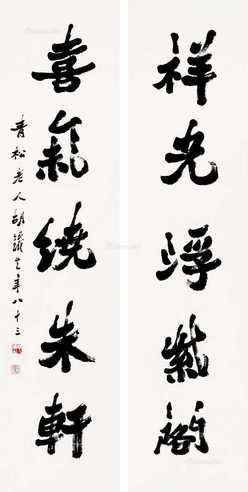 祥光浮紫閣
喜氣繞朱軒
青松老人胡鐵生年八十三